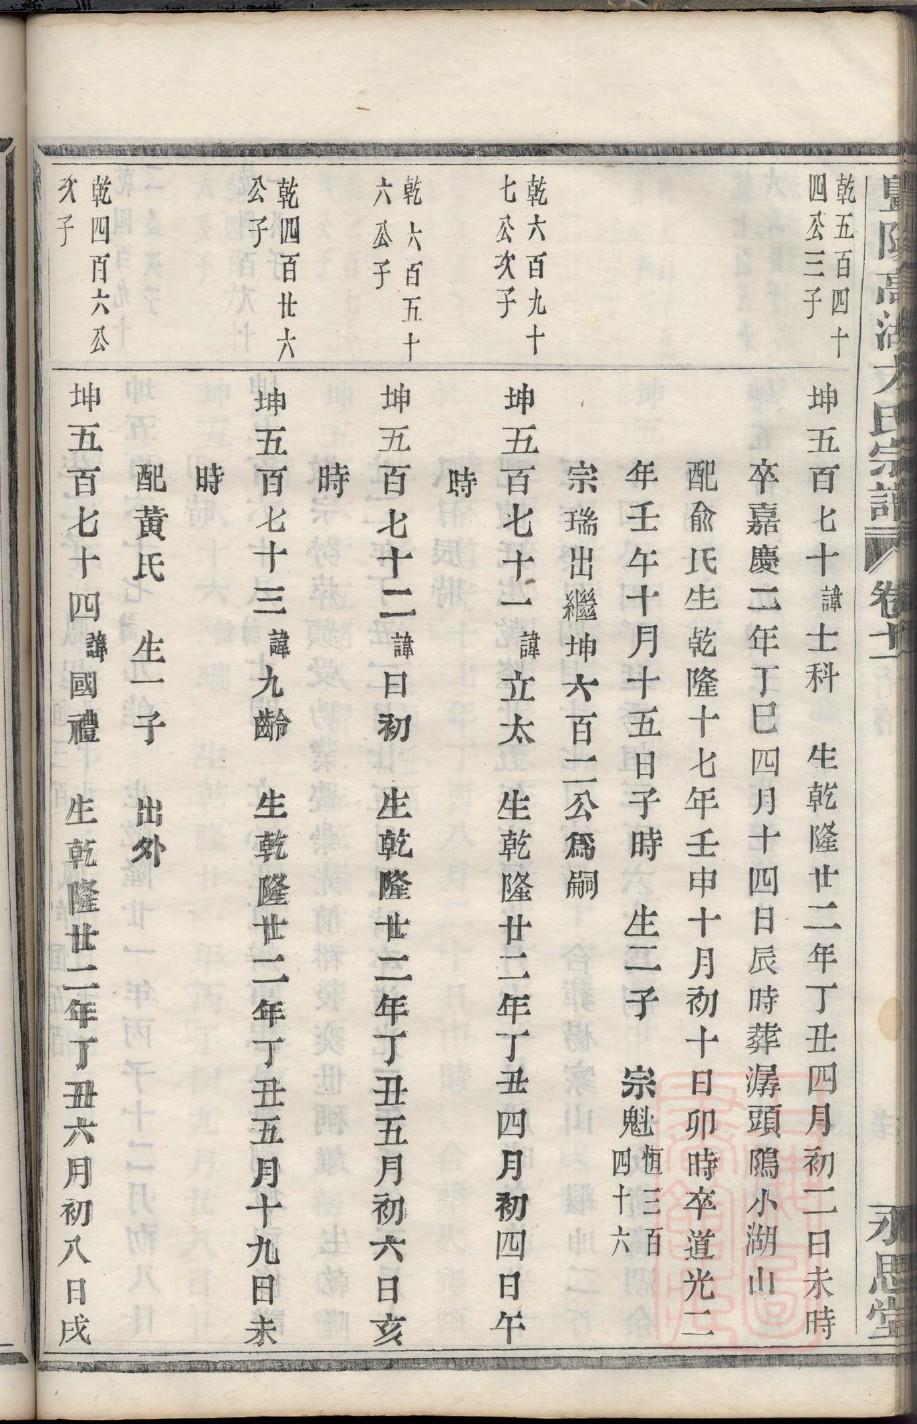 宗譜
永思堂
乾五百四十
四公三子
坤五百七十諱士科 生乾隆廿二年丁丑四月初二日未時
卒嘉慶二年丁巳四月十四日辰時葬潺頭隝小湖山
配俞氏生乾隆十七年壬申十月初十日卯時卒道光二
年壬午十月十五日子時 生二子 宗魁恆三百四十六
宗瑞出繼坤六百二公爲嗣
乾六百九十
七公次子
坤五百七十一諱立太 生乾隆廿二年丁丑四月初四日午
時
乾六百五十
六公子
坤五百七十二諱日初 生乾隆廿二年丁丑五月初六日亥
時
乾四百廿六
公子
坤五百七十三諱九齡 生乾隆廿二年丁丑五月十九日未
時
配黃氏 生一子 出外
乾四百六公
次子
坤五百七十四諱國禮 生乾隆廿二年丁丑六月初八日戌